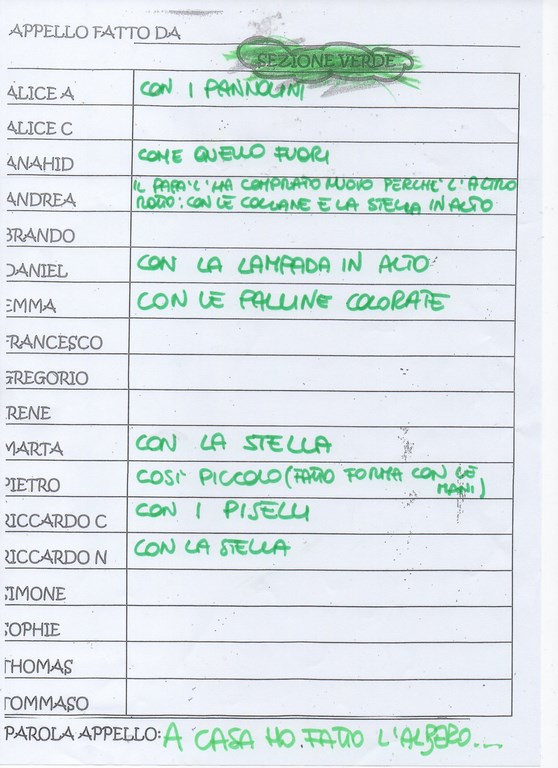 APPELLO FATTO DA
SEZIONE VERDE
ALICE A CON I PANNOLINI
ALICE C
ANAHID COME QUELLO FUORI
ANDREA IL PAPA' L'HA COMPRATO NUOVO PERCHE' L'ALTRO
ROTTO: CON LE COLLANE E LA STELLA IN ALTO
BRANDO
DANIEL CON LA LAMPADA IN ALTO
EMMA CON LE PALLINE COLORATE
FRANCESCO
GREGORIO
IRENE
MARTA CON LA STELLA
PIETRO COSI' PICCOLO (FATTO FORMA CON LE
MANI)
RICCARDO C CON I PISELLI
RICCARDO N CON LA STELLA
SIMONE
SOPHIE
THOMAS
TOMMASO
PAROLA APPELLO: A CASA HO FATTO L'ALBERO...